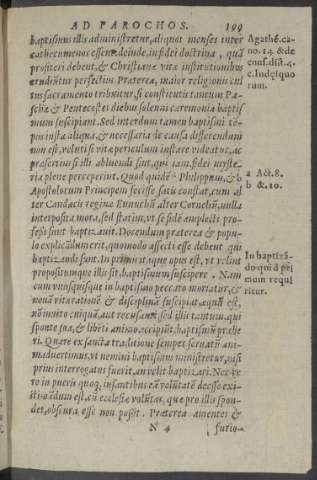 AD PAROCHOS. 199
baptismus illis administretur, aliquot menses inter
cathecumenos essent. deinde, in fidei doctrina, quā
profiteri debent, & Christianæ vitæ institutionibus
erudiātur perfectius Præterea, maior religionis cul
tus sacramento tribuitur, si constitutis tantum Pa-
schæ & Pentecostes diebus solenni cæremonia baptis
mum suscipiant. Sed interdum tamen baptismi tē-
pus iusta aliqua, & necessaria de causa differendum
non est, veluti si vitæ periculum instare videatur, ac
præsertim si illi abluendi sint, qui iam fidei myste-
ria plene perceperint. Quod quidē a Philippum, & b
Apostolorum Principem fecisse satis constat, cum al
ter Candacis reginæ Eunuchū alter Corneliū, nulla
interposita mora, sed statim, vt se fidē amplecti pro-
fessi sunt baptizauit. Docendum præterea & popu-
lo explicādum erit, quomodo affecti esse debent qui
baptizandi sunt. In primis itaque opus est, vt velint
propositumque illis sit, baptismum suscipere. Nam
cum vnusquisque in baptismo peccato moriatur, &
nouā vitæ rationē & disciplinā suscipiat, æquū est,
nō inuito cuiquā, aut recusanti sed illis tantum, qui
sponte sua, & libēti animo accipiūt, baptismū præbe
ri. Quare ex sancta traditione semper seruatū ani-
maduertimus, vt nemini baptismus ministretur, nisi
prius interrogatus fuerit, an velit baptizari. Nec ve
ro in pueris quoq; infantibus eā volūtatē deesse exi-
stimādum est, cū ecclesiæ volūtas, quæ pro illis spon-
det, obscura esse non possit. Præterea amentes &
N 4 furio-
Agathē. ca-
no. 14. & de
conf. dist. 4.
c. Indęi quo
rum.
a Act. 8.
b & 10.
In baptizā-
do quid pri
mum requi
ritur.